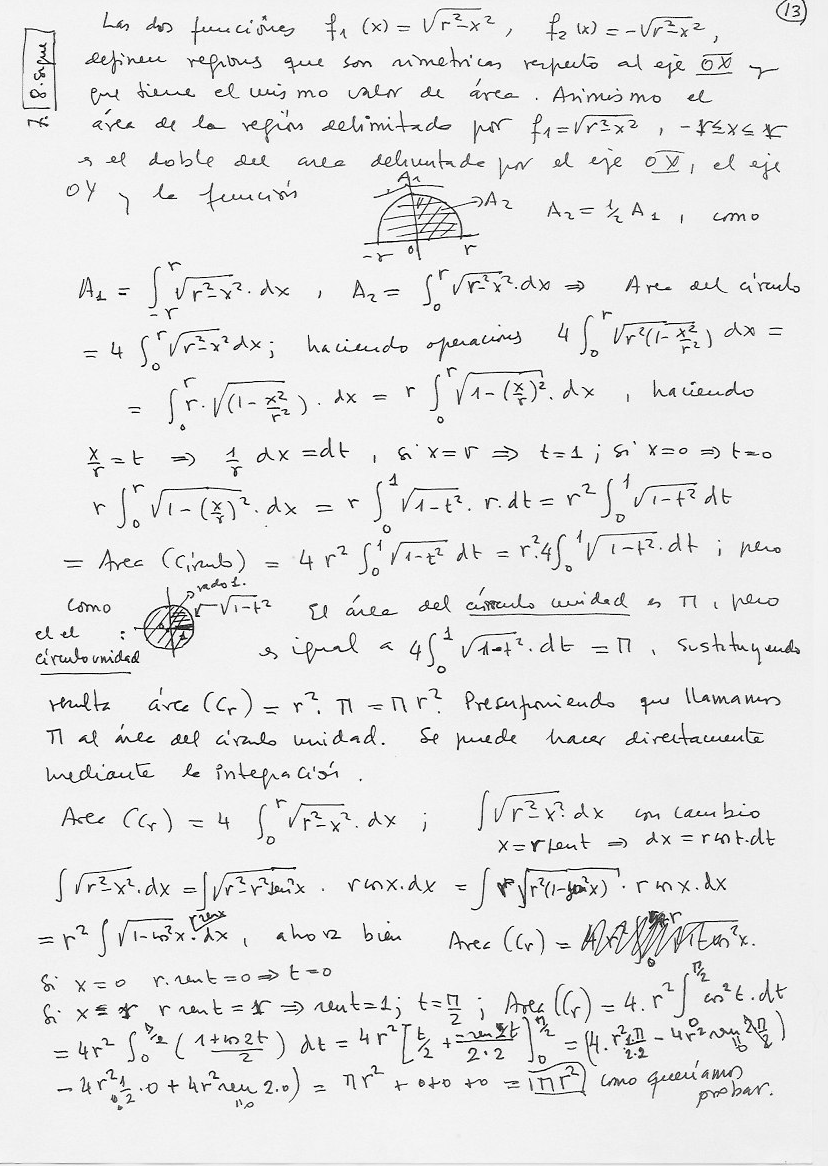 13
7. 8. Sigue
Las dos funciones f₁(x) = √(r²-x²) , f₂(x) = -√(r²-x²),
definen regiones que son simetricas respecto al eje OX y
que tiene el mismo valor de área. Asimismo el
área de la región delimitado por f₁ = √(r²-x²) , -r ≤ x ≤ r
es el doble del area delimitada por el eje OX, el eje
OY y la función
A₁
A₂
-r 0 r
A₂ = ½ A₁ , como
A₁ = ∫₋ᵣʳ √(r²-x²) · dx , A₂ = ∫₀ʳ √(r²-x²) · dx ⇒ Area del círculo
= 4 ∫₀ʳ √(r²-x²) dx ; haciendo operaciones 4 ∫₀ʳ √(r²(1-x²/r²)) dx =
= ∫₀ʳ r · √(1-x²/r²) · dx = r ∫₀ʳ √(1-(x/r)²) · dx , haciendo
x/r = t ⇒ 1/r dx = dt , si x = r ⇒ t = 1 ; si x = 0 ⇒ t = 0
r ∫₀ʳ √(1-(x/r)²) · dx = r ∫₀¹ √(1-t²) · r · dt = r² ∫₀¹ √(1-t²) dt
= Area (Círculo) = 4 r² ∫₀¹ √(1-t²) dt = r² · 4 ∫₀¹ √(1-t²) · dt ; pero
como
el el :
círculo unidad
radio 1.
√(1-t²)
El área del círculo unidad es π , pero
es igual a 4 ∫₀¹ √(1-t²) · dt = π , sustituyendo
resulta área (Cr) = r² · π = π r². Presuponiendo que llamamos
π al área del círculo unidad. Se puede hacer directamente
mediante la integración .
Area (Cr) = 4 ∫₀ʳ √(r²-x²) · dx ; ∫ √(r²-x²) · dx con cambio
x = r sent ⇒ dx = r cos t · dt
∫ √(r²-x²) · dx = ∫ √(r²-r² sen²x) · r cos x · dx = ∫ √(r²(1-sen²x)) · r cos x · dx
= r² ∫ √(1-cos²x) · dx , ahora bien Area (Cr) =
Si x = 0 r · sent = 0 ⇒ t = 0
Si x = r r sent = r ⇒ sent = 1 ; t = π/2 ; Area (Cr) = 4 · r² ∫₀^(π/2) cos² t · dt
= 4r² ∫₀^(π/2) ((1+cos 2t)/2) dt = 4r² [t/2 + sen 2t/(2·2)]₀^(π/2) = (4 · r² 1·π/(2·2) - 4r² sen 2π/2)
- 4r² 1/2 · 0 + 4r² sen 2·0) = πr² + 0 + 0 + 0 = πr² como queríamos
probar.